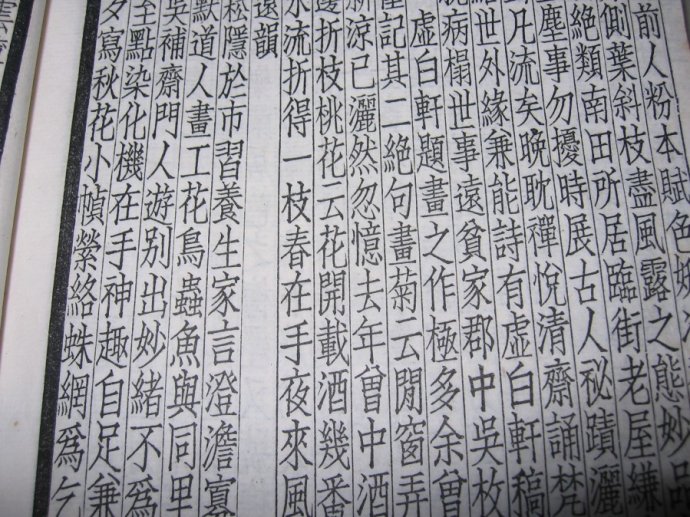 前人粉本賦色妍
側葉斜枝盡風露之態妙品
絕類南田所居臨街老屋縑
塵事勿擾時展古人祕蹟灑
凡流矣晚耽禪悅清齋誦梵
世外緣兼能詩有虛白軒稿
能病榻世事遠貧家郡中吳枚
虛白軒題畫之作極多余曾
記其二絕句畫菊云閒窗弄
新涼已灑然忽憶去年曾中酒
邊折枝桃花云花開載酒幾番
水流折得一枝春在手夜來風
遠韻
松隱於市習養生家言澄澹寡
默道人畫工花鳥蟲魚與同里
吳補齋門人遊別出妙緒不爲
至點染化機在手神趣自足兼
夕寫秋花小幀縈絡蛛網爲乞